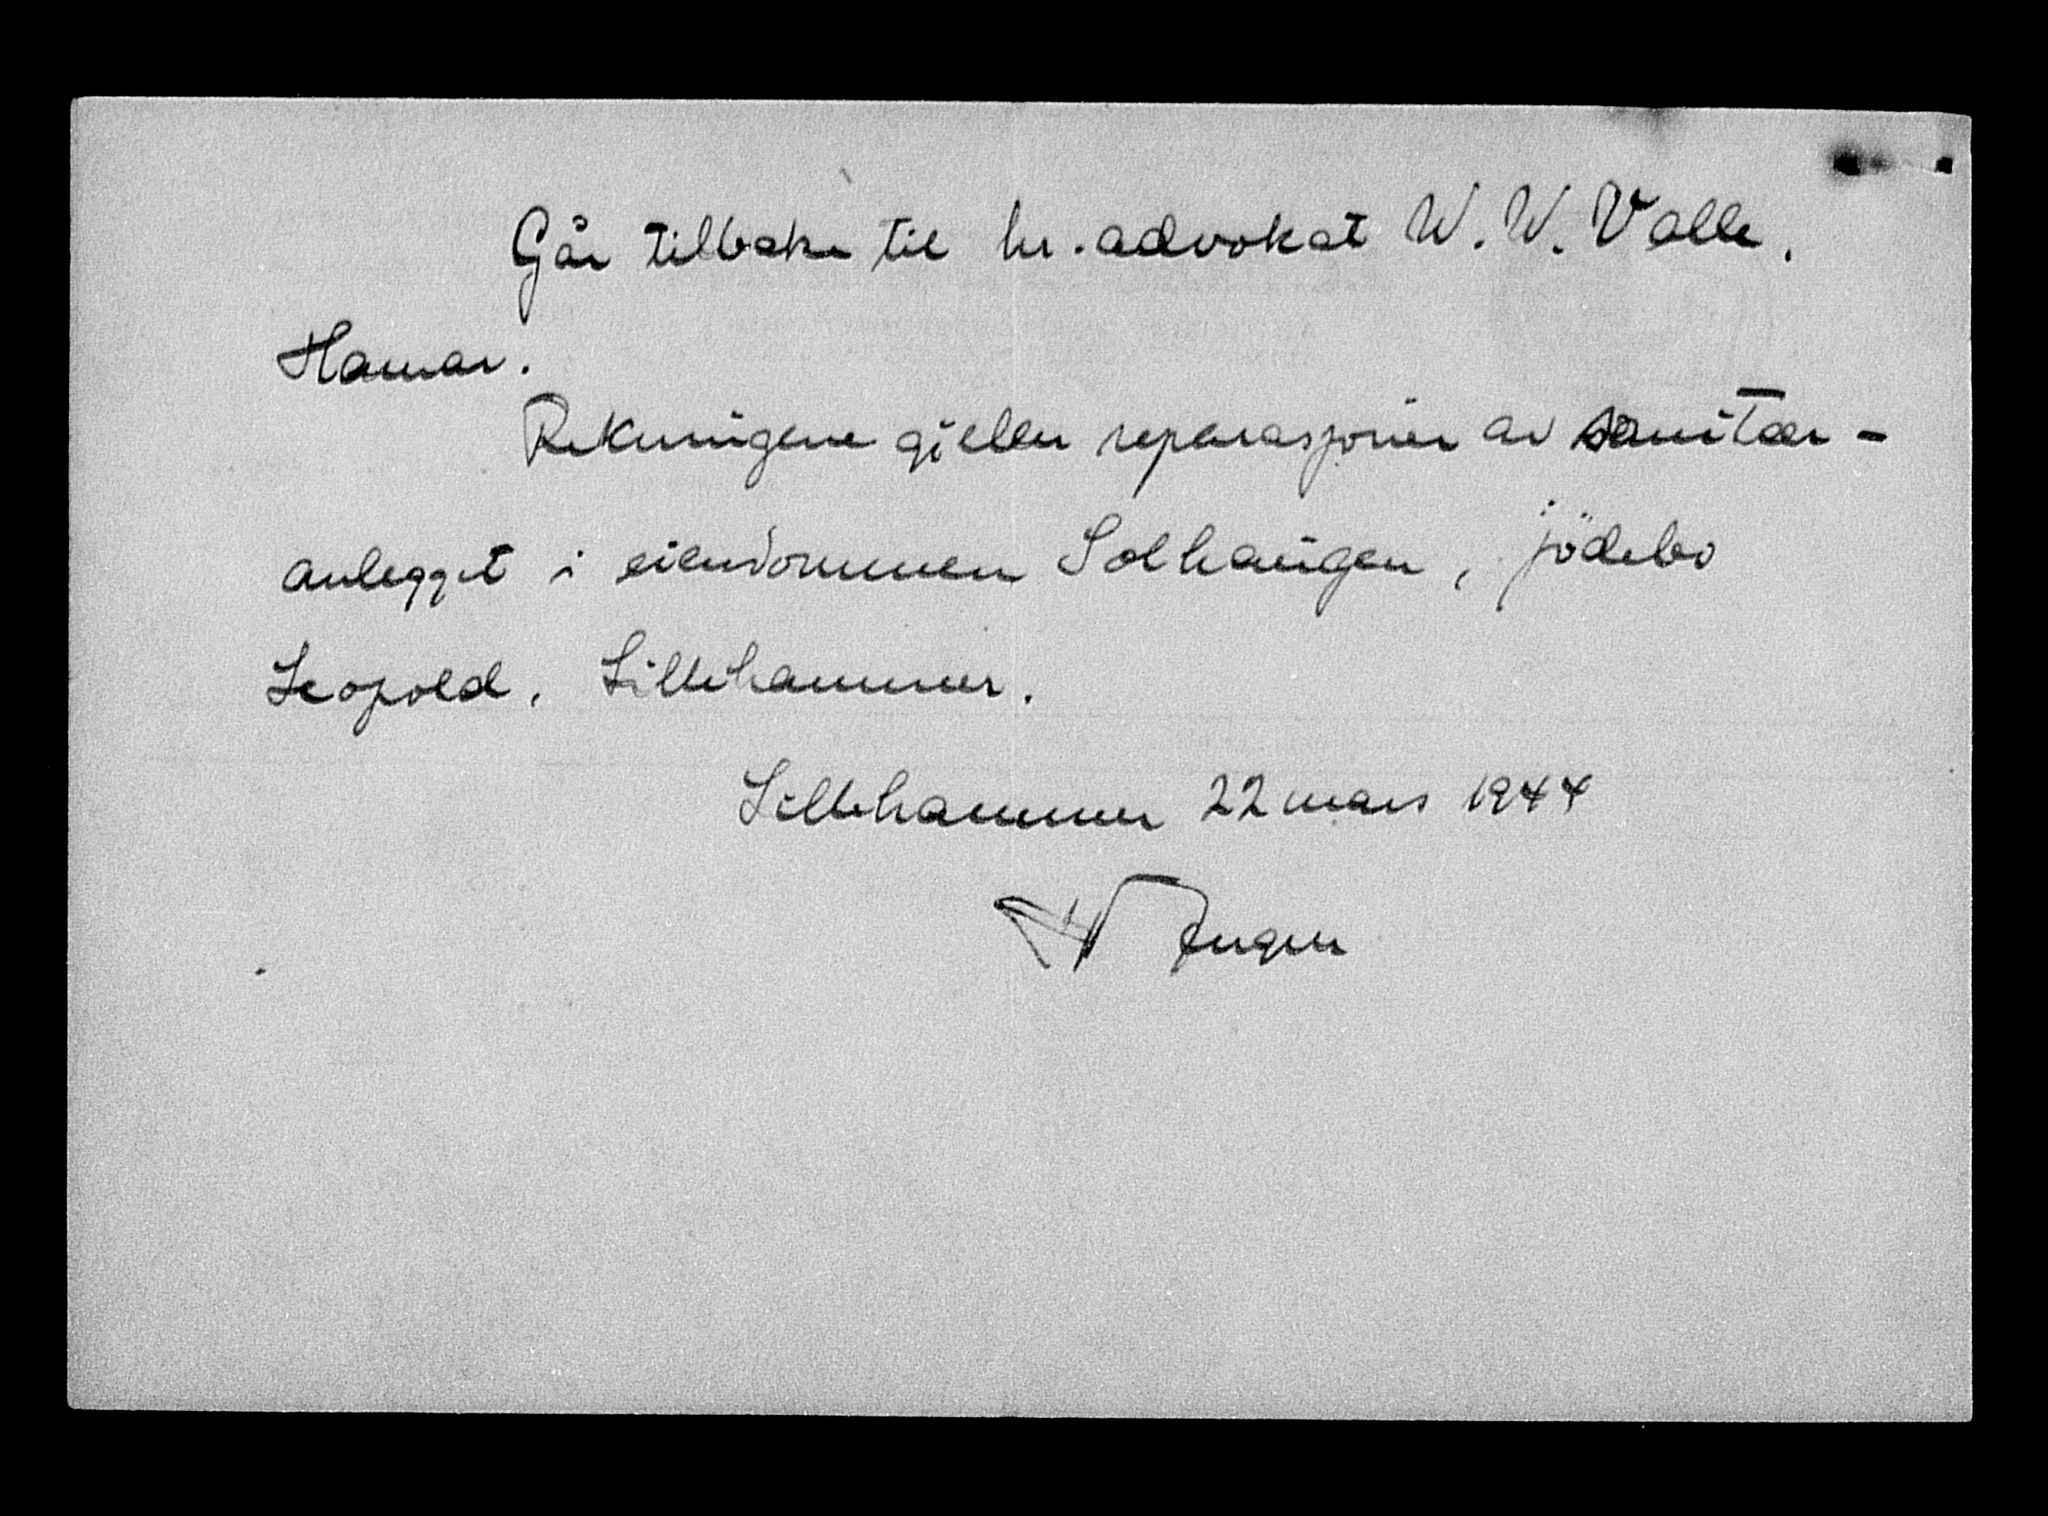 Går tilbake til hr. advokat W. W. Valle.
Hamar.
Rekningene gjeller reparasjoner av sanitær-
anlegget i eiendommen Solhaugen, jödebo
Leopold, Lillehammer.
Lillehammer 22 mars 1944